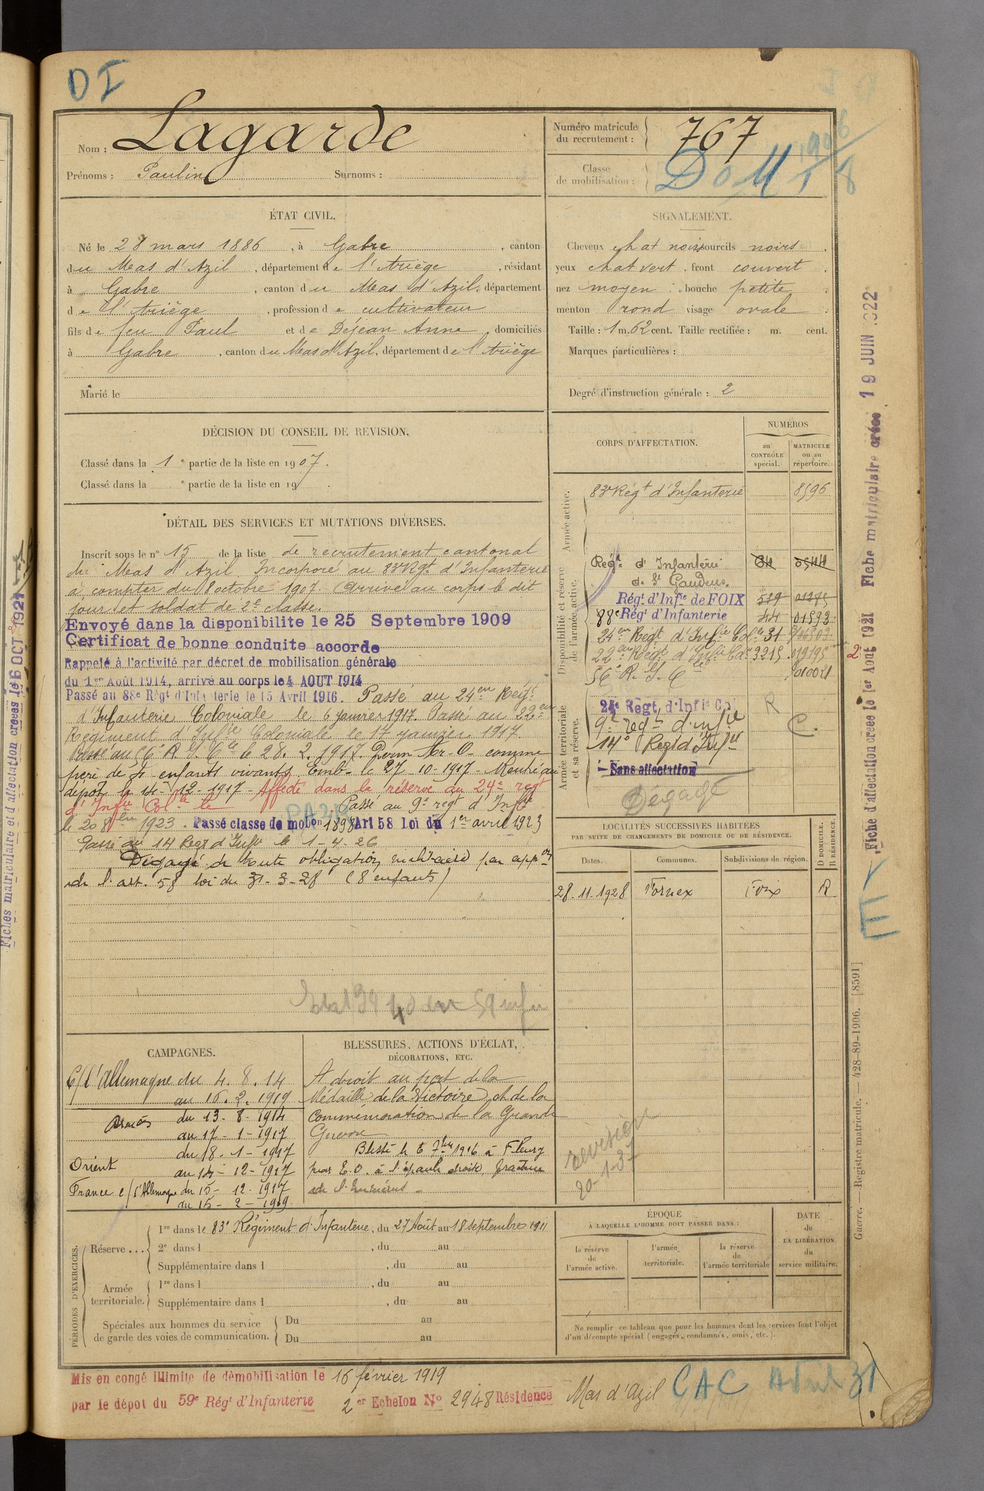 D I
Nom : Lagarde
Prénoms : Paulin Surnoms :
Numéro matricule du recrutement : 767
Classe de mobilisation :
ÉTAT CIVIL.
Né le 28 mars 1886, à Gabre, canton
du Mas d'Azil, département de l'Ariège, résidant
à Gabre, canton du Mas d'Azil, département
de l'Ariège, profession de cultivateur
fils de feu Paul et de Dejean Anne, domiciliés
à Gabre, canton du Mas d'Azil, département de l'Ariège
Marié le
SIGNALEMENT.
Cheveux chat noirs sourcils noirs
yeux chat vert, front couvert
nez moyen bouche petite
menton rond visage ovale
Taille : 1 m. 62 cent. Taille rectifiée : m. cent.
Marques particulières :
Degré d'instruction générale : 2
DÉCISION DU CONSEIL DE REVISION.
Classé dans la 1e partie de la liste en 1907.
Classé dans la e partie de la liste en 19 .
DÉTAIL DES SERVICES ET MUTATIONS DIVERSES.
Inscrit sous le n° 15 de la liste de recrutement cantonal
du Mas d'Azil Incorporé au 83e Régt d'Infanterie
à compter du 8 octobre 1907. Arrivé au corps le dit
jour et soldat de 2e classe.
Envoyé dans la disponibilite le 25 Septembre 1909
Certificat de bonne conduite accorde
Rappelé à l'activité par décret de mobilisation générale
du 1er Août 1914, arrivé au corps le 4 AOUT 1914
Passé au 88e Régt d'Infanterie le 15 Avril 1916. Passé au 24em Régt
d'Infanterie Coloniale le 6 janvier 1917. Passé au 22em
Régiment d'Infie Coloniale le 17 janvier 1917.
Passé au 56e R. I. Cle le 28. 2. 1917. comme
père de enfants vivants. Emb. le 27-10-1917 - Rentré au
dépôt le 14-12-1917 - Affecté dans la réserve au 24e regt
d'Infie Colle le Passé au 9e regt d'Infie
le 20 1923. Passé classe de mobon 1898 Art 58 loi du 1er avril 1923
Passé au 14 Regt d'Infie le 1-4-26
Dégagé de toute obligation militaire par appon
de l'art. 58 loi du 31-3-28 (8 enfants)
CORPS D'AFFECTATION.
NUMÉROS
au CONTRÔLE spécial.
MATRICULE ou au répertoire.
Armée active.
83e Régt d'Infanterie 8596
Disponibilité et réserve de l'armée active.
Régt d'Infanterie
de St Gaudens
Régt d'Infie de FOIX
88e Régt d'Infanterie
24em Régt d'Infie Cole 31
22em Régt d'Infie Cole
56e R. I. C
Armée territoriale et sa réserve.
24e Régt. d'Infie Cle R
9e regt d'infie C.
14e Regt d'Infie
Sans affectation
Dégagé
LOCALITÉS SUCCESSIVES HABITÉES
PAR SUITE DE CHANGEMENTS DE DOMICILE OU DE RÉSIDENCE.
Dates. Communes. Subdivisions de région. D DOMICILE. R RÉSIDENCE.
28-11-1928 Fornex Foix R
CAMPAGNES.
C/ l'Allemagne du 4. 8. 14
au 16. 2. 1919
du 13-8-1914
au 17-1-1917
Orient du 18-1-1917
au 14-12-1917
France c/ l'Allemagne du 15-12-1917
au 15-2-1919
BLESSURES, ACTIONS D'ÉCLAT,
DÉCORATIONS, ETC.
A droit au port de la
Médaille de la Victoire et de la
Commémoration de la Grande
Guerre
Blessé le 6 1916 à Fleury
par E. O. à l'épaule droite, fracture
de l'humérus
reversion
20-1-37
PÉRIODES D'EXERCICES.
Réserve... 1re dans le 83e Régiment d'Infanterie, du 27 Août au 18 septembre 1911
2e dans l , du au
Supplémentaire dans l , du au
Armée territoriale. 1re dans l , du au
Supplémentaire dans l , du au
Spéciales aux hommes du service de garde des voies de communication. Du au
Du au
ÉPOQUE
À LAQUELLE L'HOMME DOIT PASSER DANS :
la réserve de l'armée active.
l'armée territoriale.
la réserve de l'armée territoriale
DATE de LA LIBÉRATION du service militaire.
Ne remplir ce tableau que pour les hommes dont les services font l'objet
d'un décompte spécial (engagés, condamnés, omis, etc.).
Mis en congé illimité de démobilisation le 16 février 1919
par le dépot du 59e Régt d'Infanterie
2er Echelon N° 2948 Résidence Mas d'Azil
CAC
Fiche matriculaire créée 19 JUIN 1922
Fiche d'affectation créée le 1er Août 1921
Guerre. — Registre matricule. — 428-89-1906. [8591]
Fiches matriculaire et d'affectation créées le 6 OCT 1921